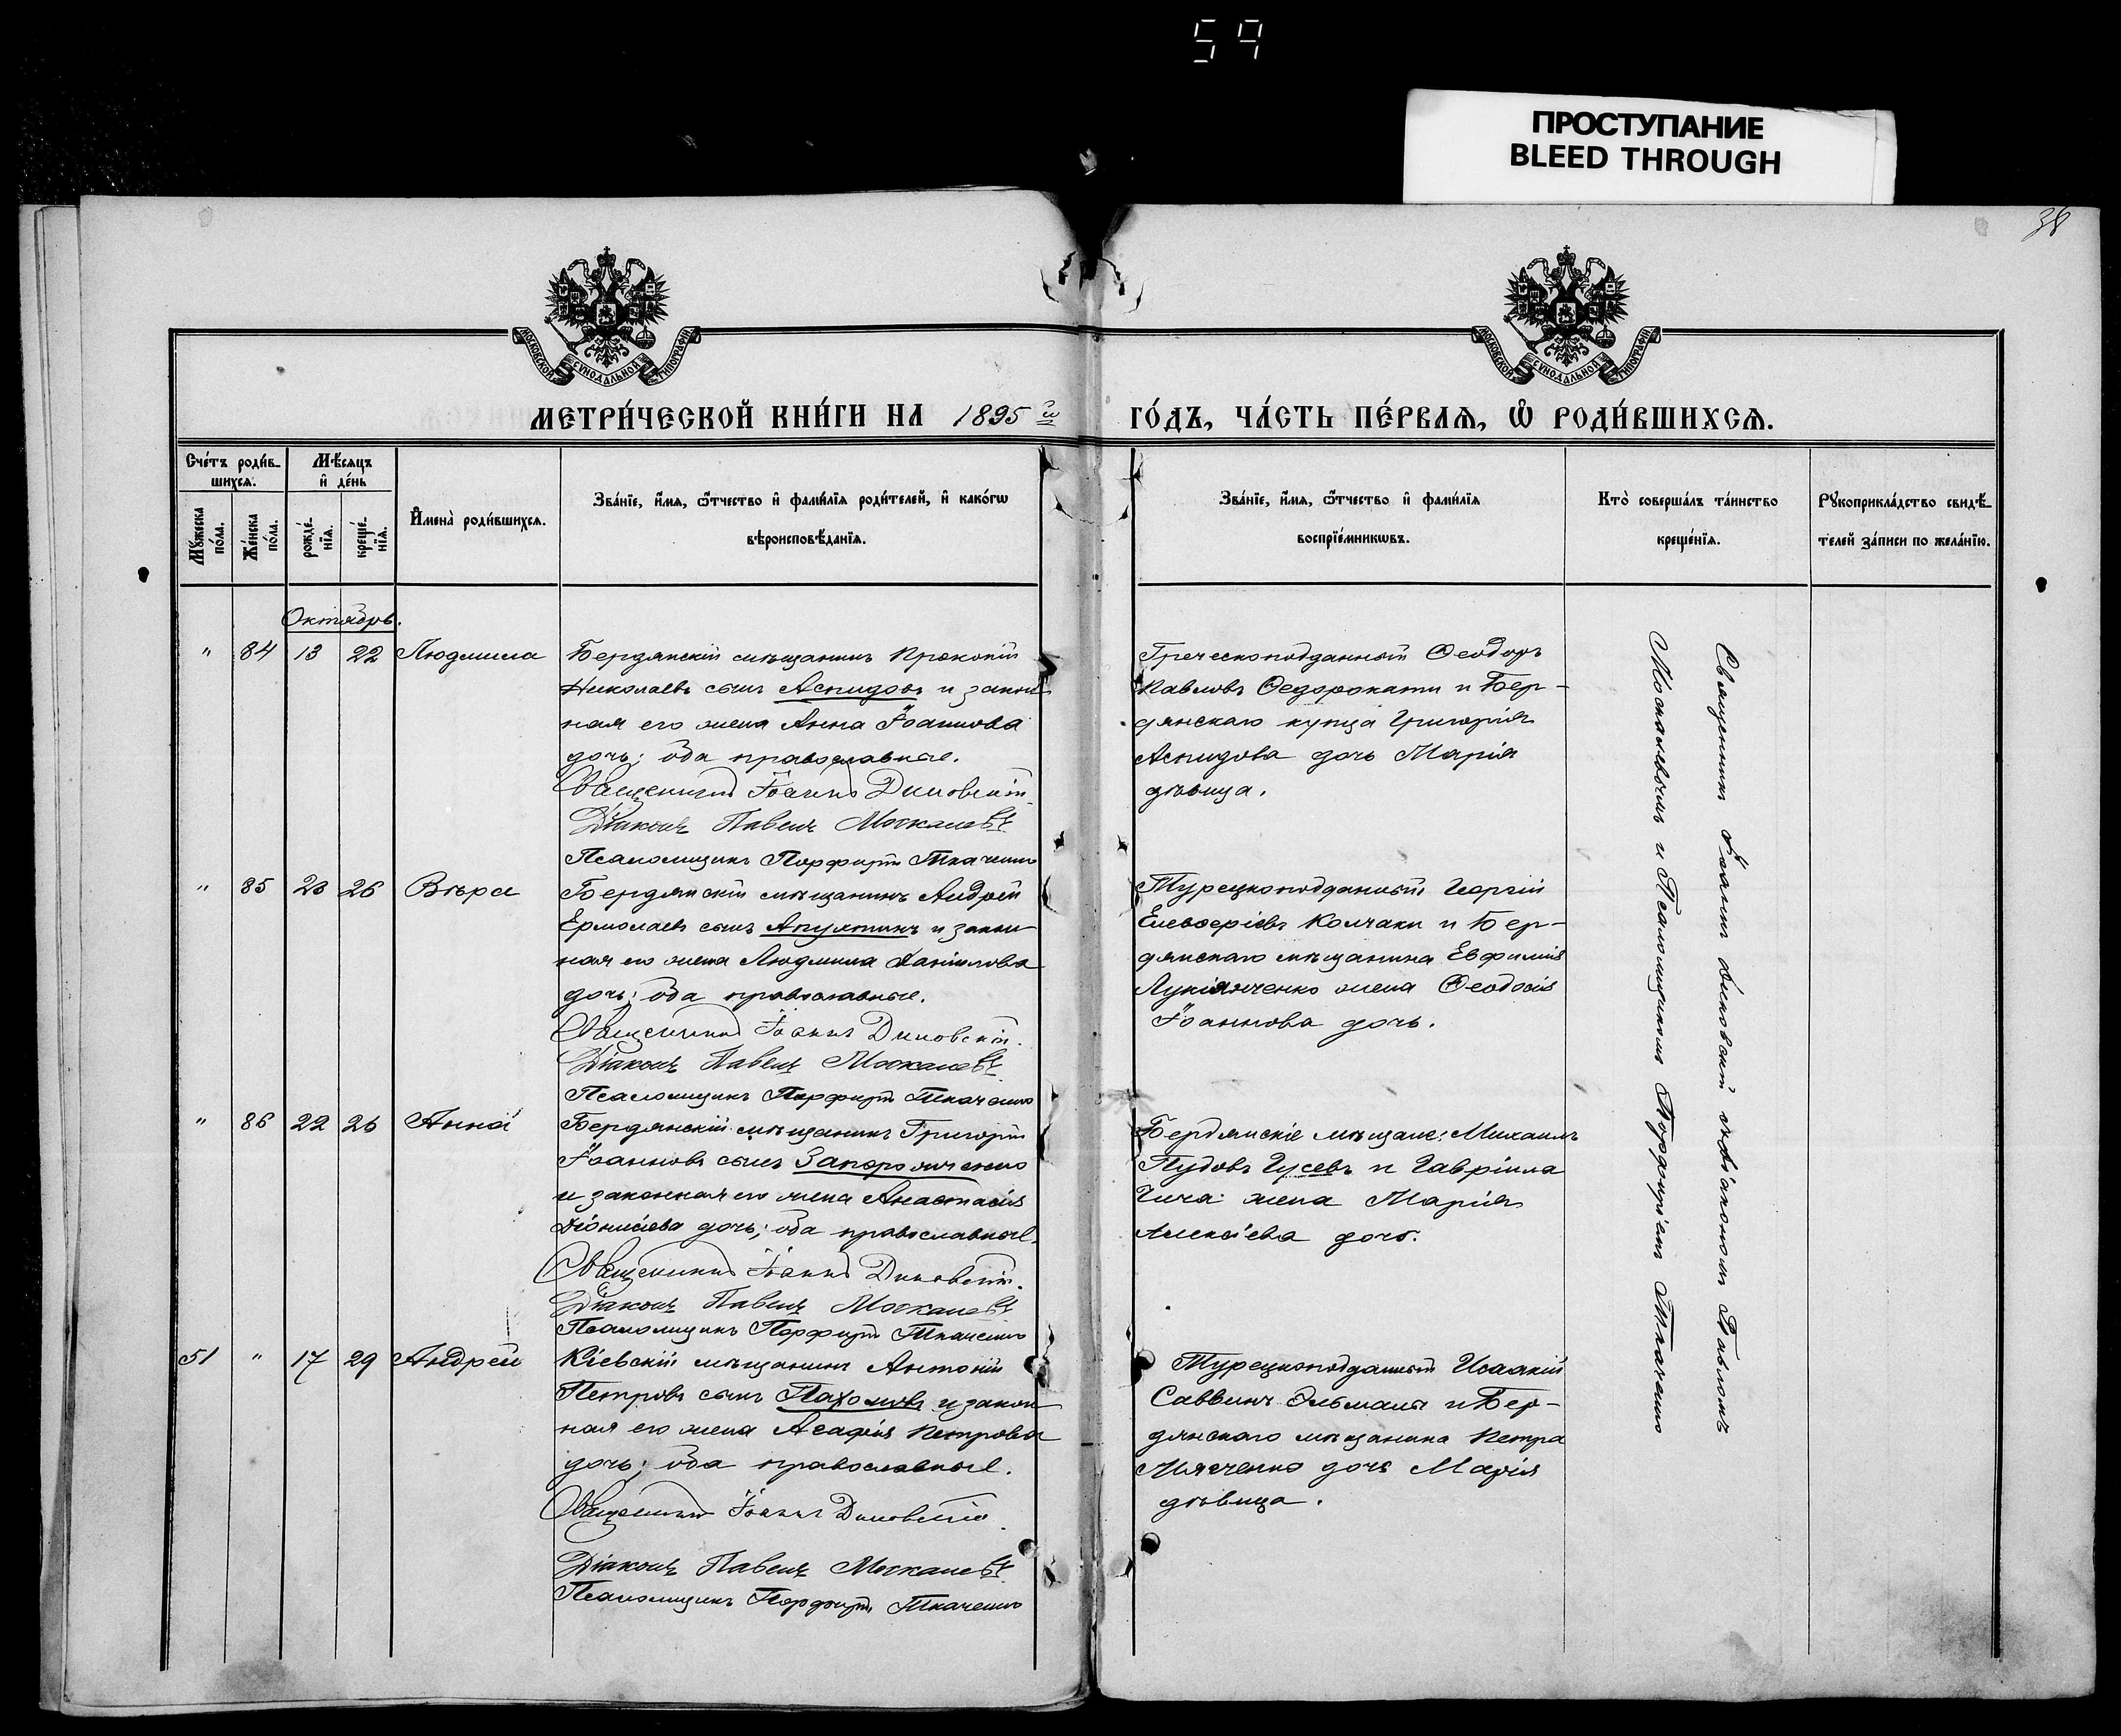 59
ПРОСТУПАНИЕ
BLEED THROUGH
38
МОСКОВСКОЙ СѴНОДАЛЬНОЙ ТИПОГРАФІИ
МОСКОВСКОЙ СѴНОДАЛЬНОЙ ТИПОГРАФІИ
МЕТРИ́ЧЕСКОЙ КНИ́ГИ НА 1895 й
ГО́ДЪ, ЧА́СТЬ ПЕ́РВАѦ, Ѡ҆ РОДИ́ВШИХСѦ.
Сче́тъ роди́в-
шихсѧ.
Мѣ́сѧцъ
и҆ де́нь
Мꙋ́жеска по́ла.
Же́нска по́ла.
рожде́-нїѧ.
креще́-нїѧ.
И҆мена̀ роди́вшихсѧ.
Зва́нїе, и҆́мѧ, ѻ҆́тчество и҆ фами́лїѧ роди́телей, и҆ како́гѡ
вѣроисповѣ́данїѧ.
Зва́нїе, и҆́мѧ, ѻ҆́тчество и҆ фами́лїѧ
воспрїе́мникѡвъ.
Кто̀ соверша́лъ та́инство
креще́нїѧ.
Рꙋкоприкла́дство свидѣ́-
телей за́писи по жела́нїю.
Октябрь.
" 84 13 22 Людмила
Бердянскій мѣщанинъ Прокопій
Николаевъ сынъ Аспидовъ и закон
ная его жена Анна Іоаннова
дочь; оба православные.
Священникъ Іоаннъ Диковскій.
Діаконъ Павелъ Москалевъ
Псаломщикъ Порфирій Ткаченко
Греческоподданный Ѳеодоръ
Павловъ Ѳедорокати и Бер-
дянскаго купца Григорія
Аспидова дочь Марія
дѣвица.
" 85 23 26 Вѣра
Бердянскій мѣщанинъ Андрей
Ермолаевъ сынъ Апухтинъ и закон
ная его жена Людмила Даніилова
дочь; оба православные.
Священникъ Іоаннъ Диковскій.
Діаконъ Павелъ Москалевъ
Псаломщикъ Порфирій Ткаченко
Турецкоподданный Георгій
Елевѳеріевъ Колчаки и Бер-
дянскаго мѣщанина Евфимія
Лукіянченко жена Ѳеодосія
Іоаннова дочь.
" 86 22 26 Анна
Бердянскій мѣщанинъ Григорій
Іоанновъ сынъ Запорожченко
и законная его жена Анастасія
Діонисіева дочь; оба православные.
Священникъ Іоаннъ Диковскій.
Діаконъ Павелъ Москалевъ
Псаломщикъ Порфирій Ткаченко
Бердянскіе мѣщане: Михаилъ
Пудовъ Гусевъ и Гавріила
жена Марія
Алексіева дочь.
51 " 17 29 Андрей
Кіевскій мѣщанинъ Антоній
Петровъ сынъ Пахомовъ и закон
ная его жена Агафія Петрова
дочь; оба православные.
Священникъ Іоаннъ Диковскій.
Діаконъ Павелъ Москалевъ
Псаломщикъ Порфирій Ткаченко
Турецкоподданный Исаакій
Саввинъ и Бер-
дянскаго мѣщанина Петра
дочь Марія
дѣвица.
Священникъ Іоаннъ Диковскій съ діакономъ Павломъ
Москалевымъ и Псаломщикомъ Порфиріемъ Ткаченко